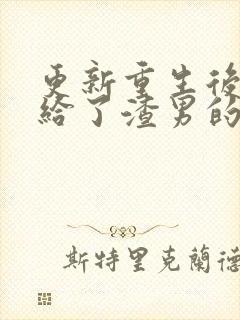 更新重生後
給了渣男的
斯特里克蘭德